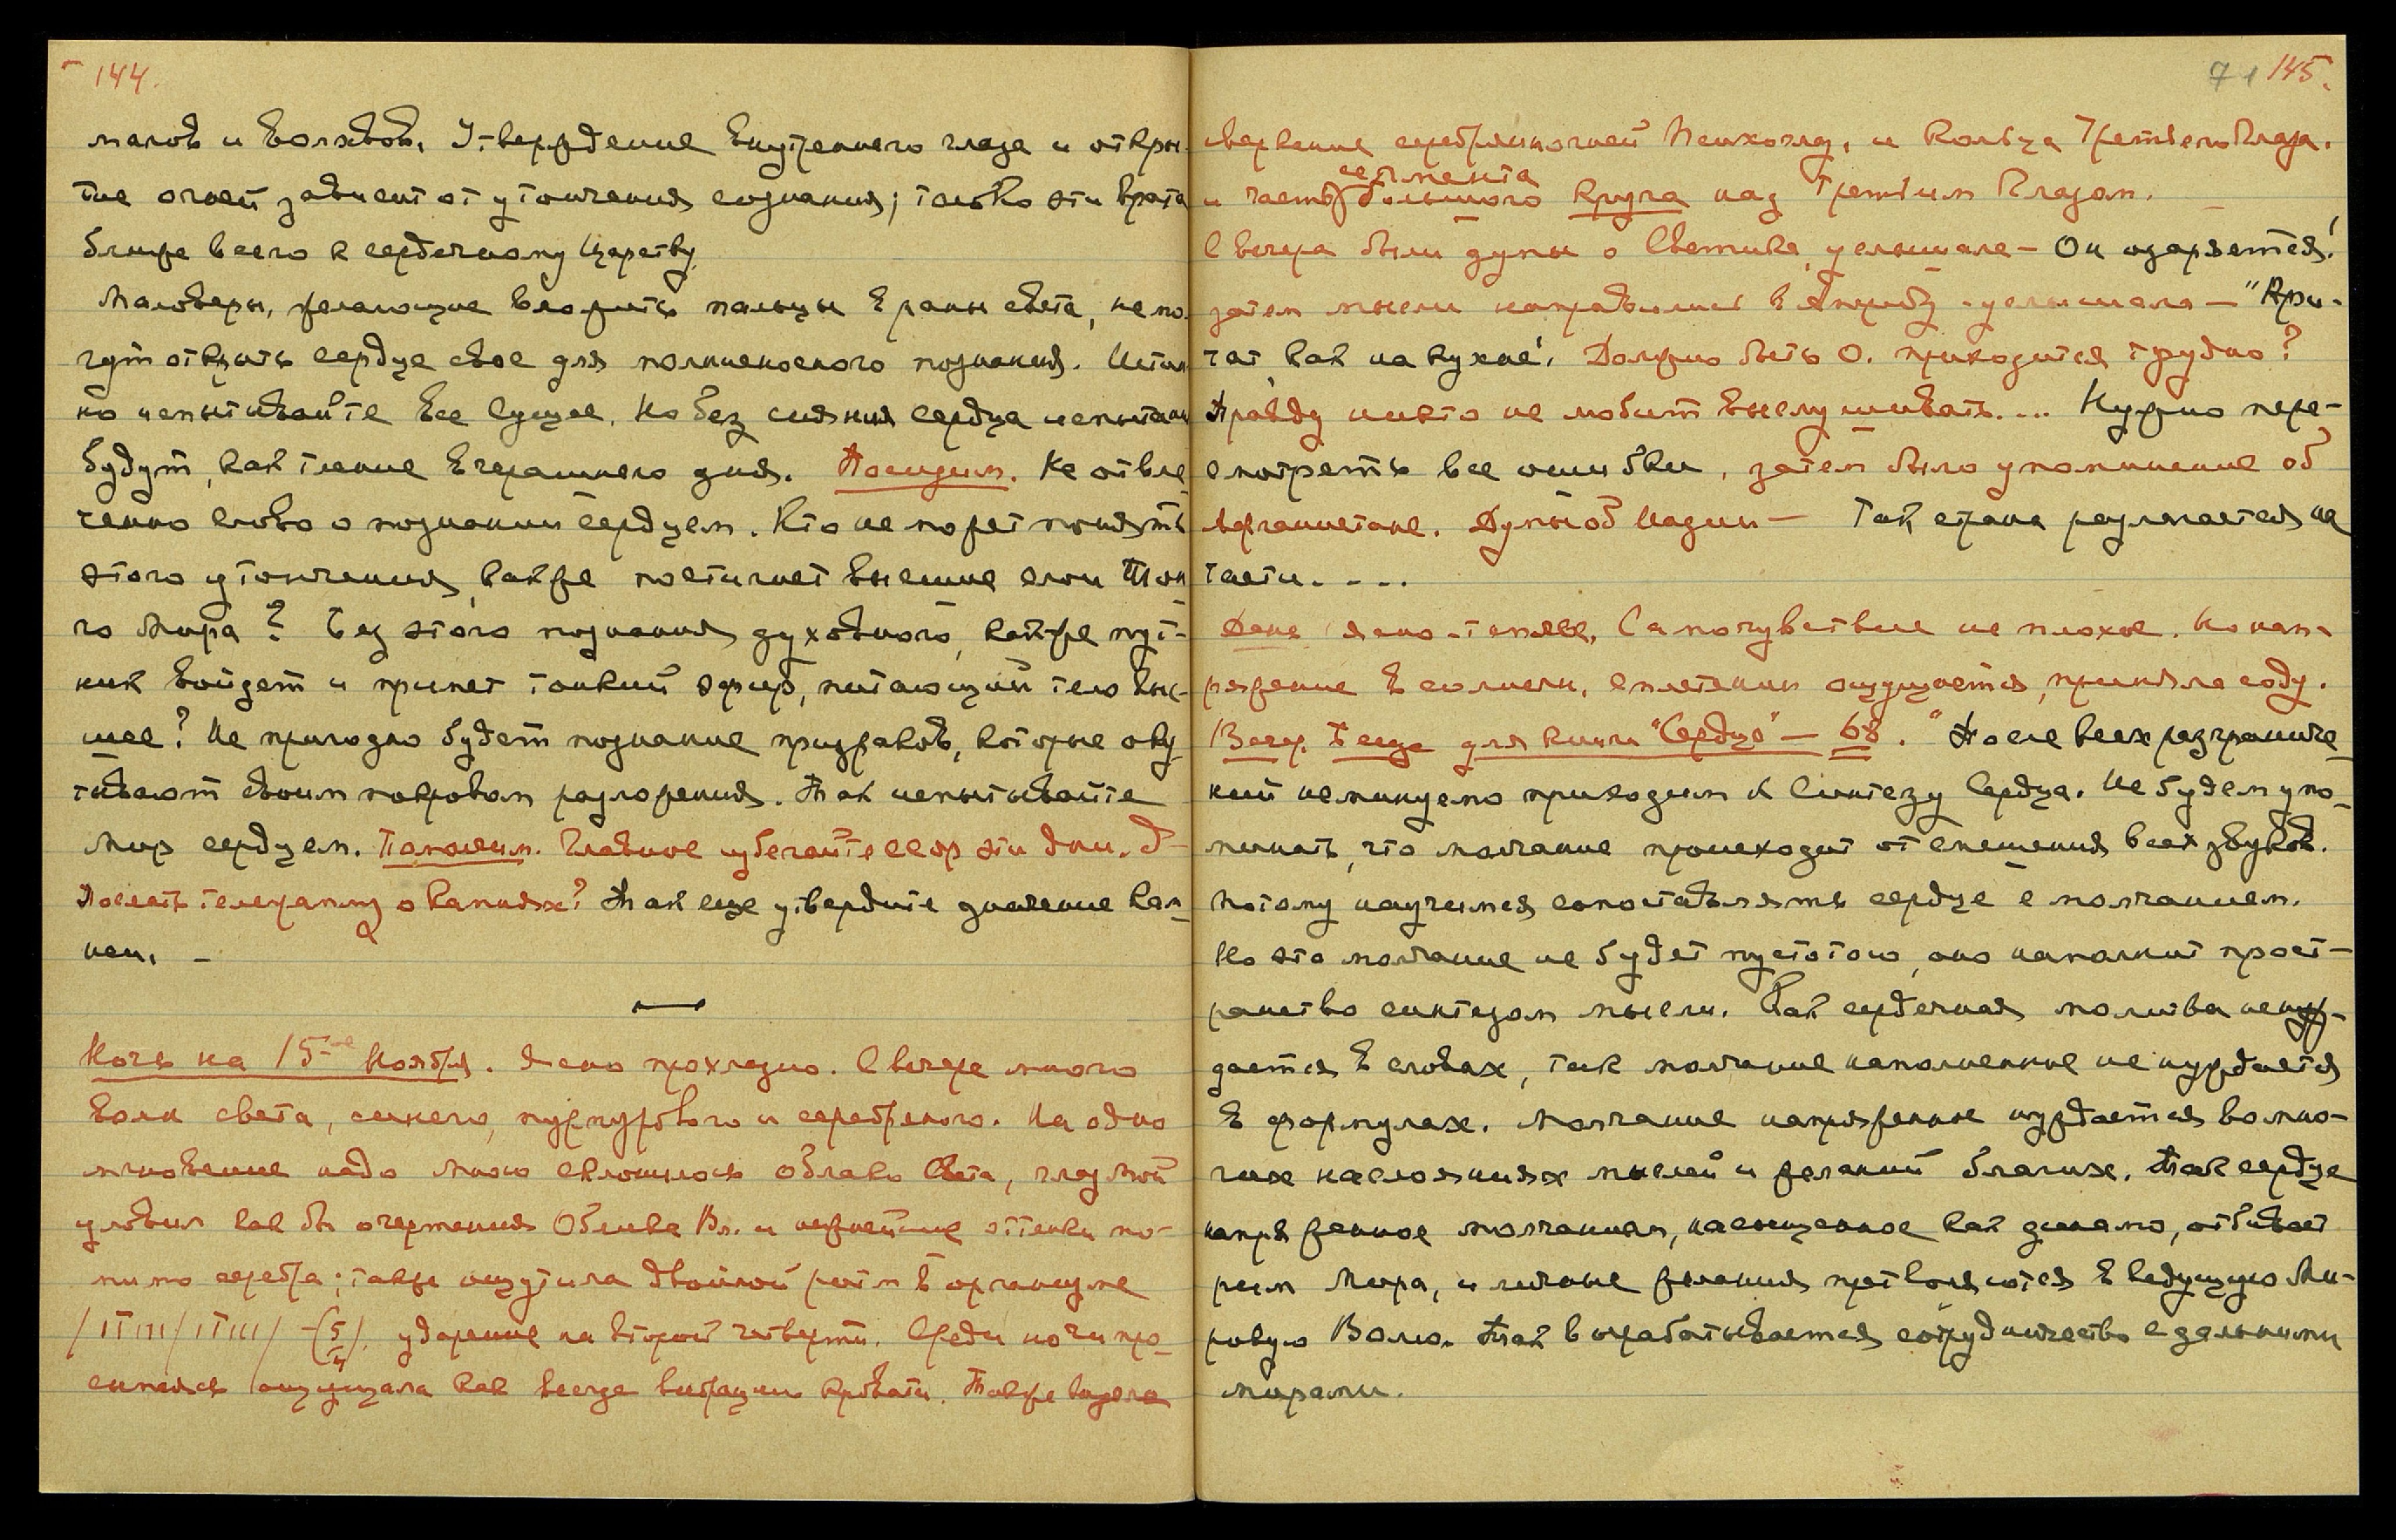 144.
магов и волхвов. Утверждение внутреннего глаза и откры-
тие огней зависит от утончения сознания; только эти врата
ближе всего к сердечному Царству.
Маловеры, желающие вложить пальцы в раны света, не мо-
гут открыть сердце свое для молниеносного познания. Истин
но испытывайте все Сущее. Но без сияния сердца испытани
будут, как тление вчерашнего дня. Посидим. Не отвле
ченно слово о познании сердцем. Кто не может понять
этого утончения, как же постигнет высшие слои Тон
го Мира? Без этого познания духовного, как же пут-
ник войдет и примет тонкий эфир, питающий тело выс-
шее? Не пригодно будет познание призраков, которые оку
тывают своим покровом разложения. Так испытывайте
Мир сердцем. Помолчим. Главное избегайте ссор эти дни.
Послать телеграмму о камнях? Так еще утвердите значение кам-
ней. –
Ночь на 15-ое Ноября. Ясно прохладно. С вечера много
волн света, синего, пурпурового и серебряного. На одно
мгновение надо мною склонилось облако Света, глаз мой
уловил как бы очертания Облика Вл. и нежнейшие оттенки по-
мимо серебра; также ощутила двойной ритм в организме
/ ITIII / ITIII / – (5/4) ударение на второй четверти. Среди ночи про-
снулась ощущала как всегда вибрации кровати. Также видела
71 145.
сверкание серебряных огней и Кольца Третьего Глаза.
и часть сегмента большого круга над Третьим Глазом. –
С вечера были думы о Светике, услышала – Он озаряется!
затем мысли направились в Америку – услышала – "Кри-
чат, как на кухне". Должно быть О. приходится трудно?
Правду никто не любит выслушивать.... Нужно пере-
смотреть все ошибки, затем было упоминание об
Афганистане. Думы об Индии – Так страна разлагается на
части. . . .
День ясно-теплее. Самочувствие не плохое. Но нап-
ряжение в солнечн. сплетении ощущается, приняла соду.
Вечер. Беседа для книги "Сердце" – 68. "После всех разграниче-
ний неминуемо приходим к Синтезу Сердца. Не будем упо-
минать, что молчание происходит от смешения всех звуков.
Потому научимся сопоставлять сердце с молчанием.
Но это молчание не будет пустотою, оно наполнит прост-
ранство синтезом мысли. Как сердечная молитва не нуж-
дается в словах, так молчание наполненное не нуждается
в формулах. Молчание напряженное нуждается во мно-
гих наслоениях мыслей и желаний благих. Так сердце
напряженное молчанием, насыщенное как динамо, отбивает
ритм Мира, и личные желания претворяются в ведущую Ми-
ровую Волю. Так вырабатывается сотрудничество с дальними
мирами.